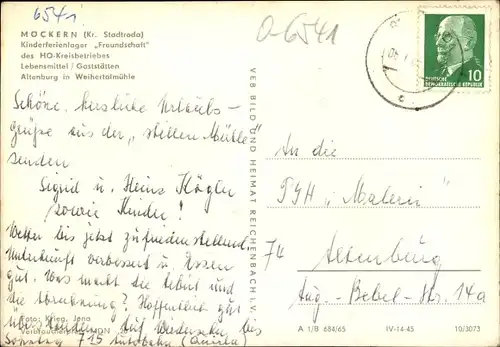 6541
O-6541
MÖCKERN (Kr. Stadtroda)
Kinderferienlager „Freundschaft"
des HO-Kreisbetriebes
Lebensmittel / Gaststätten
Altenburg in Weihertalmühle
Schöne, herzliche Urlaubs-
grüße aus der „stillen Mühle"
senden
Sigrid u. Heinz Kögler
sowie Kinder!
Wetter bis jetzt zufriedenstellend,
Unterkunft verbessert u. Essen
gut. Was macht die Arbeit und
die Abrechnung? Hoffentlich gut
überstanden. Auf Wiedersehn bis
Sonntag 7 15 Autobahn
Foto: Krieg, Jena
VEB BILD UND HEIMAT REICHENBACH I. V.
DEUTSCHE
DEMOKRATISCHE REPUBLIK
10
An die
PGH „Malerei"
74 Altenburg
Aug.-Bebel-Str. 14a
A 1/B 684/65 IV-14-45 10/3073